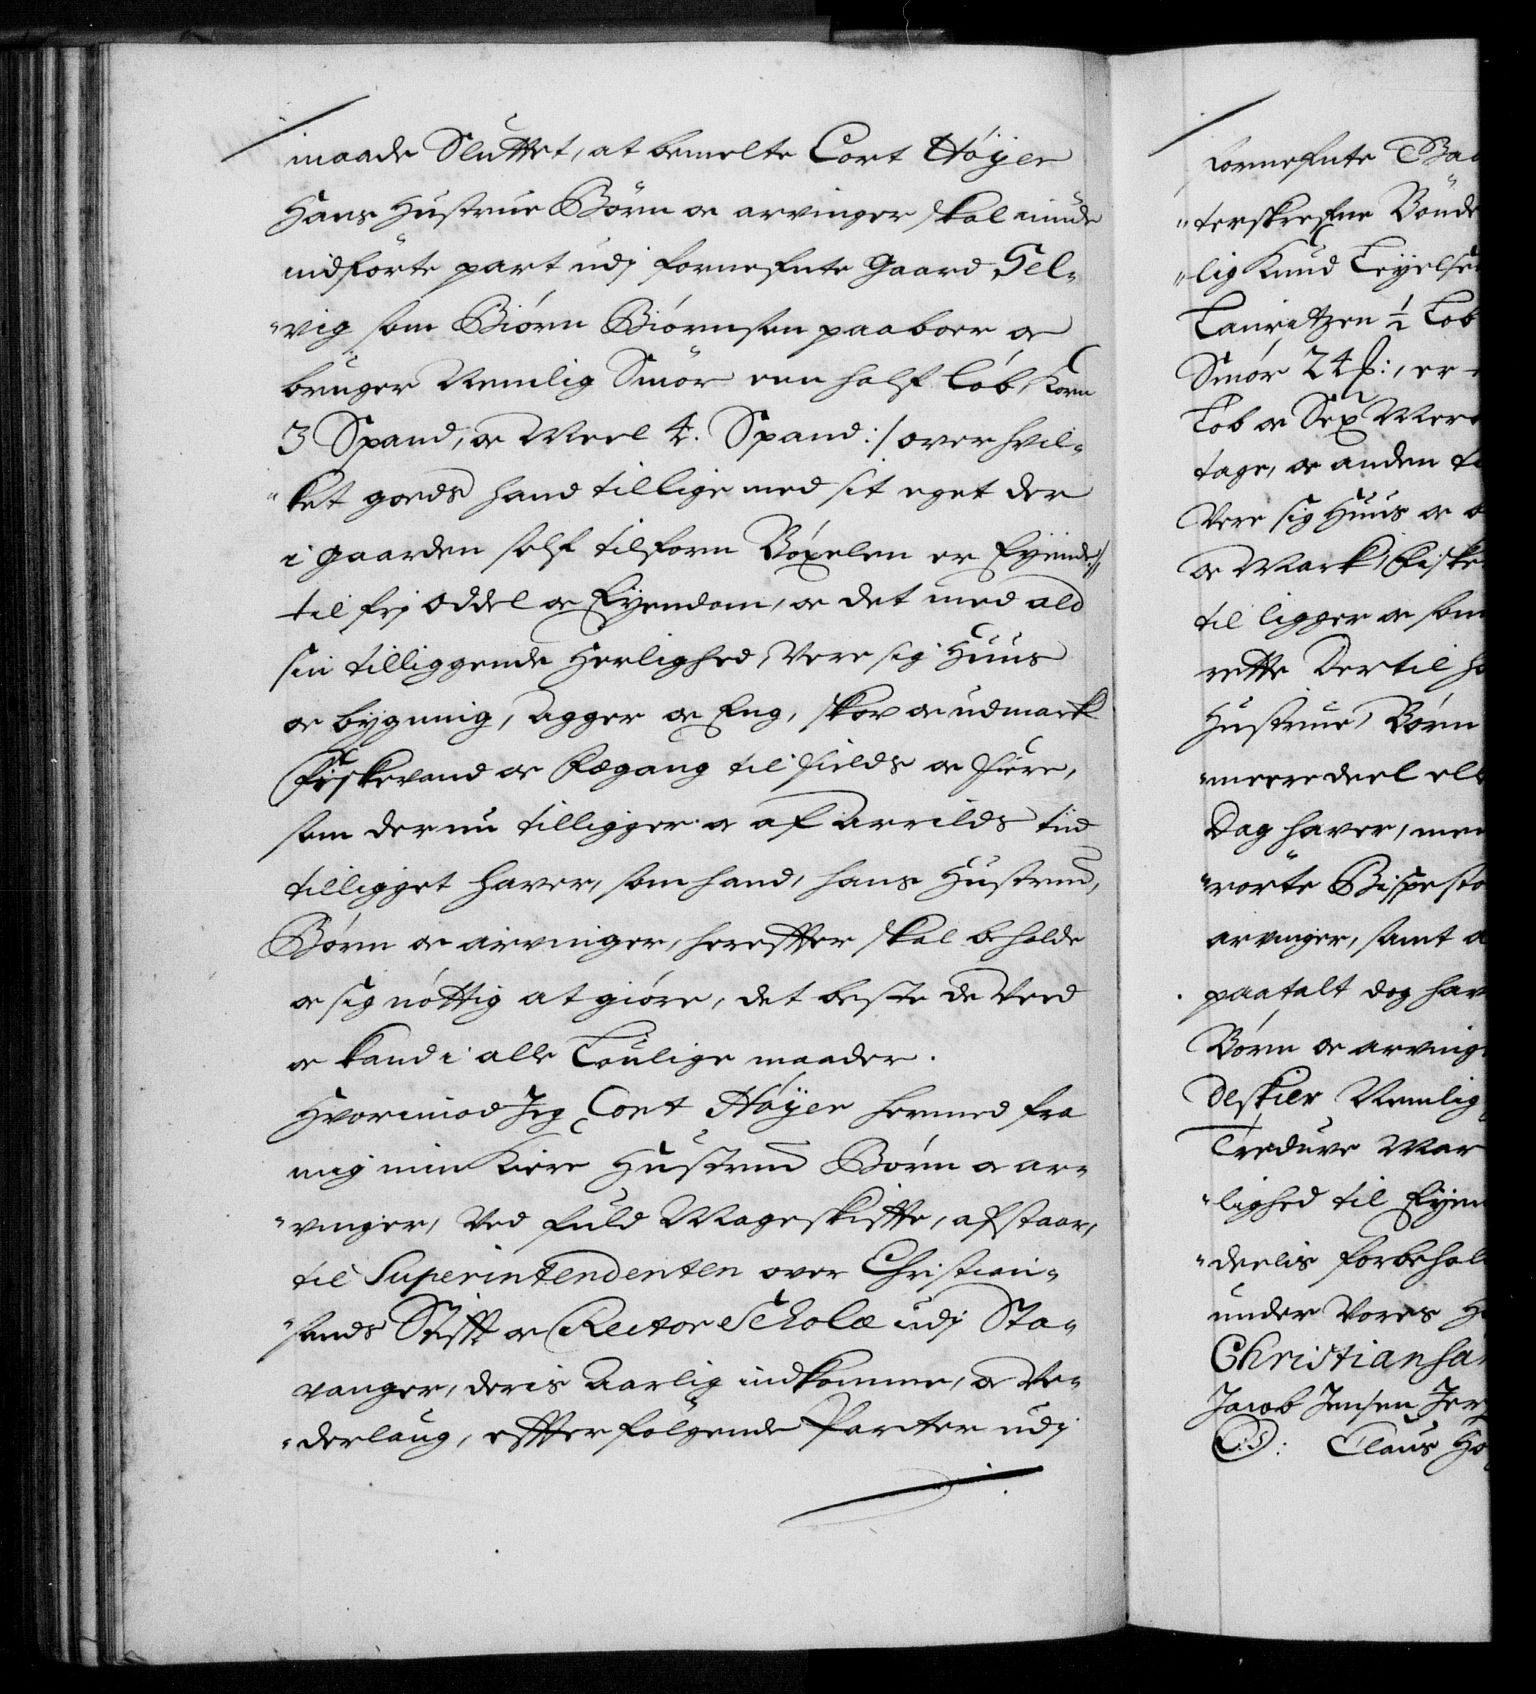 maade Sluttet, at bemelte Cort Höyer
Hans Hustrue Börn oc arvinger skal niude
indförte part udj forneffnte Gaard Sel-
"vig som Biörn Biörnsen paaboer oc
bruger Nemlig Smör een half Löb, Korn
3 Spand, oc Meel 4. Spand:/ over hvil-
"ket goeds hand tillige med sit eget der
i gaarden self tilforn Böxelen er Eyende:/
til frj oddel oc Eyendom, oc det med ald
sin tilliggende Herlighed, Vere sig Huus
oc bygning, Agger oc Eng, skov oc udmark
Fiskevand oc Fægang til fields oc fiere,
som der nu tilligger oc af Arrilds tiid
tilligget haver, som hand, hans Hustrue,
Börn oc airvinger, hereffter skal beholde
oc sig nöttig at giöre, det beste de Veed
oc kand i alle Loulige maader.
Hvorimod Jeg Cort Höyer hermed fra
mig min Kiere Hustrue Börn oc ar-
"vinger, Ved fuld Mageskiffte, afstaar,
til Superintendenten over Christian-
"sands Stifft oc Rector Scholæ udj Sta-
vanger, deris Aarlig indkomme, oc Ve-
"derlaug, effterfölgende Parter udj
forneffnte
"terskreffne Bönde
"lig Knud
Lauritzen ½ Löb
Smör 24
Löb oc Sex Merc
tage, oc anden
Vere sig Huus oc
oc Mark, Fiske
til ligger oc som
rette Dertil
Hustrue, Börn
"meere deel
Dag haver, men
"rörte Bispesto
arvinger, samt
paatalt dog hav
Börn oc arving
Nemlig
Tredive Mar
"lighed til Eyen
"deelis forbehol
under Vores
Christiansa
Jacob Jensen
Claus